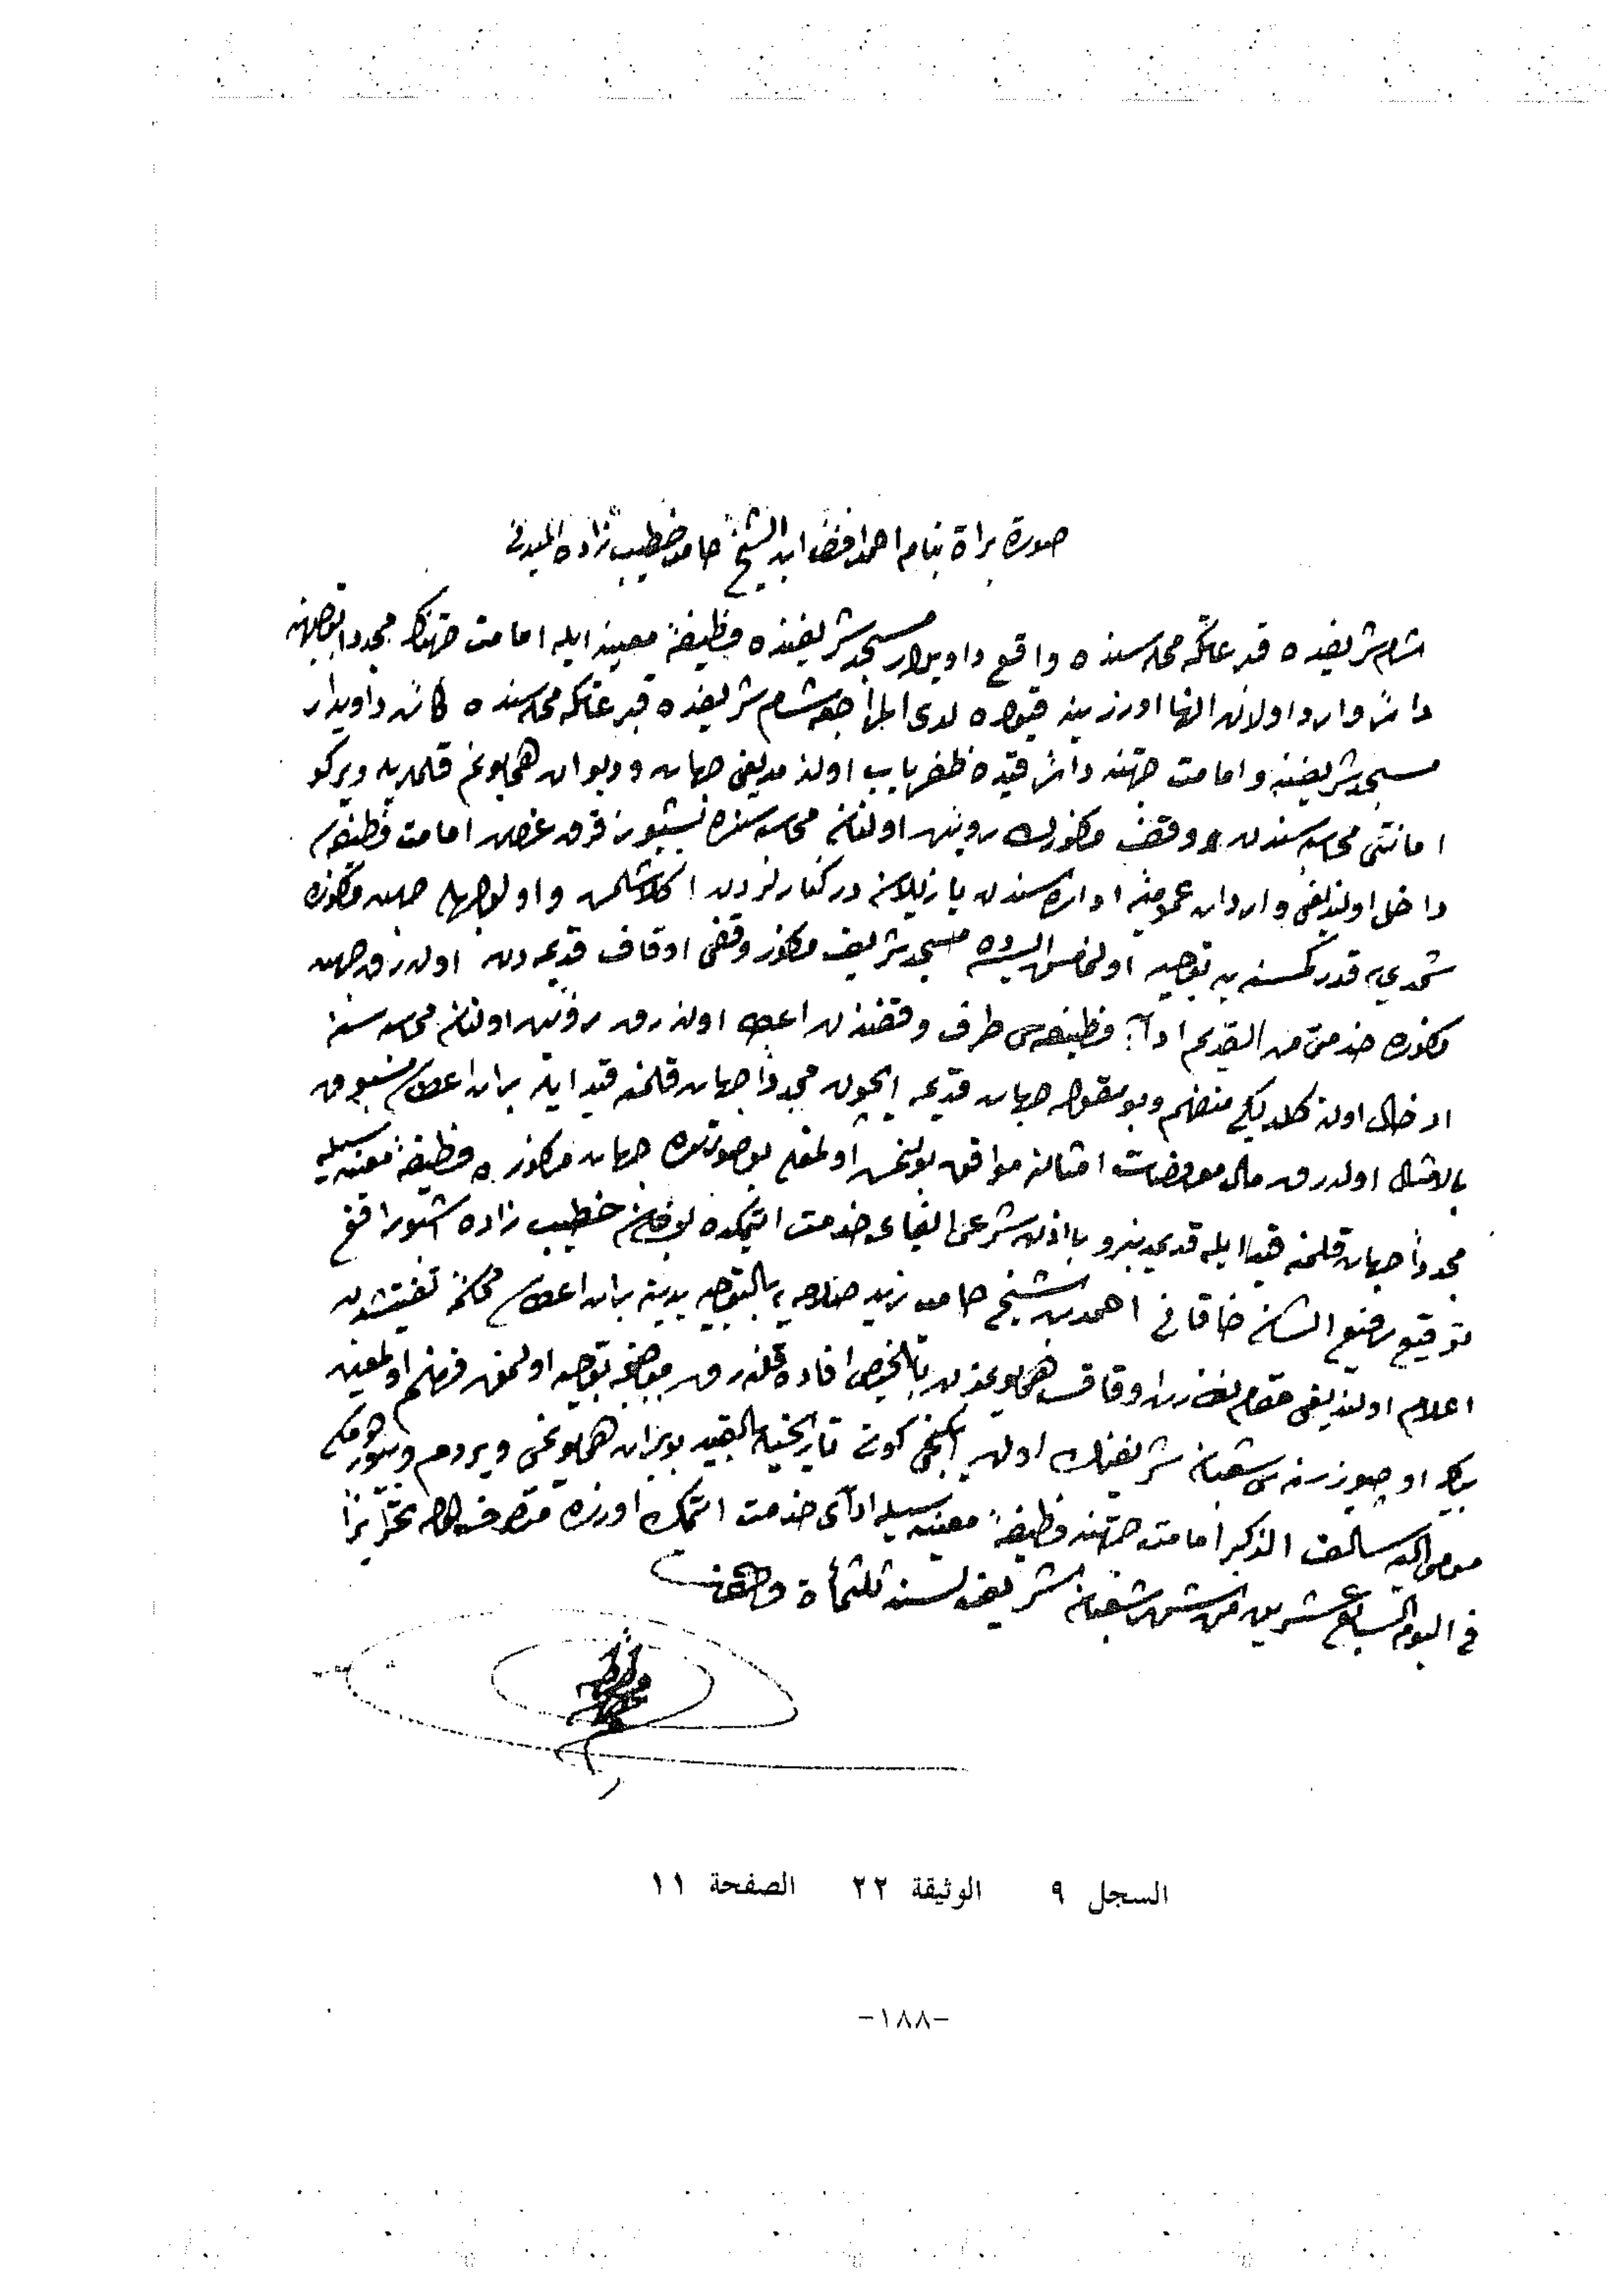 صورة براة بنام احمد افندى ابن الشيخ حامد خطيب زاده الميدنى
شام شريفده قبر عاتكه محله سنده واقع داويدار مسجد شريفنده وظيفهٔ معينه ايله امامت جهتنك مجددا توجيهنه
دائر وارد اولان انها اوزرينه قيوده لدى المراجعه شام شريفده قبر عاتكه محله سنده كائن داويدار
مسجد شريفنه وامامت جهتنه دائر قيده ظفرياب اولنه مديغى جهات وديوان همايونم قلملريله ويركو
امانتى محاسبه سندن ووقف مذكورك رويت اولنان محاسبه سنده غروش امامت وظيفه سى
داخل اولنديغى واردات عموميه اداره سندن يازيلان دركنارلردن اكلاشلمش واولوجهله جهت مذكوره
شمدى يه قدر كمسنه يه توجيه اولنمامش ايسه ده مسجد شريف مذكور وقفى اوقاف قديمه دن اوله رق جهت
مذكوره خدمتى من القديم ادا وظيفه سى طرف وقفندن اعطا اولنه رق رؤيت اولنان محاسبه سنه
ادخال اولنه كلديكى منفهم وبو مقوله جهات قديمه ايچون مجددا جهات قلمنه قيد ايله برات اعطاسى مسبوق
بالامثال اوله رق حال معروضات امثالنه موافق بولنمش اولمغله بوصورتده جهات مذكوره وظيفهٔ معينه سيله
مجددا جهات قلمنه قيد ايله قديمدنبرو بااذن شرعى ايفاى خدمت ايتمكده بولنان خطيب زاده اشبو رافع
توقيع رفيع الشان خاقانى احمد بن شيخ حامد زيد صلاحه يه بالتوجيه يدينه برات اعطاسى محكمهٔ تفتيشدن
اعلام اولنديغى مقام نظارت اوقاف همايونمدن بالتلخيص افاده قلنه رق موجبنجه توجيه اولنمق فرمانم اولمغين
بيك اوچيوز سنه سى شعبان شريفنك اون ايكنجى كونى تاريخيله بالقيد بو برات همايونمى ويردم وبيوردم كه
مومى اليه سالف الذكر امامت جهتنه وظيفهٔ معينه سيله اداى خدمت ايتمك اوزره متصرف اوله تحريرا
فى اليوم السابع عشرين من شهر شعبان الشريف لسنه ثلثمأة والف
السجل ٩ الوثيقة ٢٢ الصفحة ١١
-١٨٨-